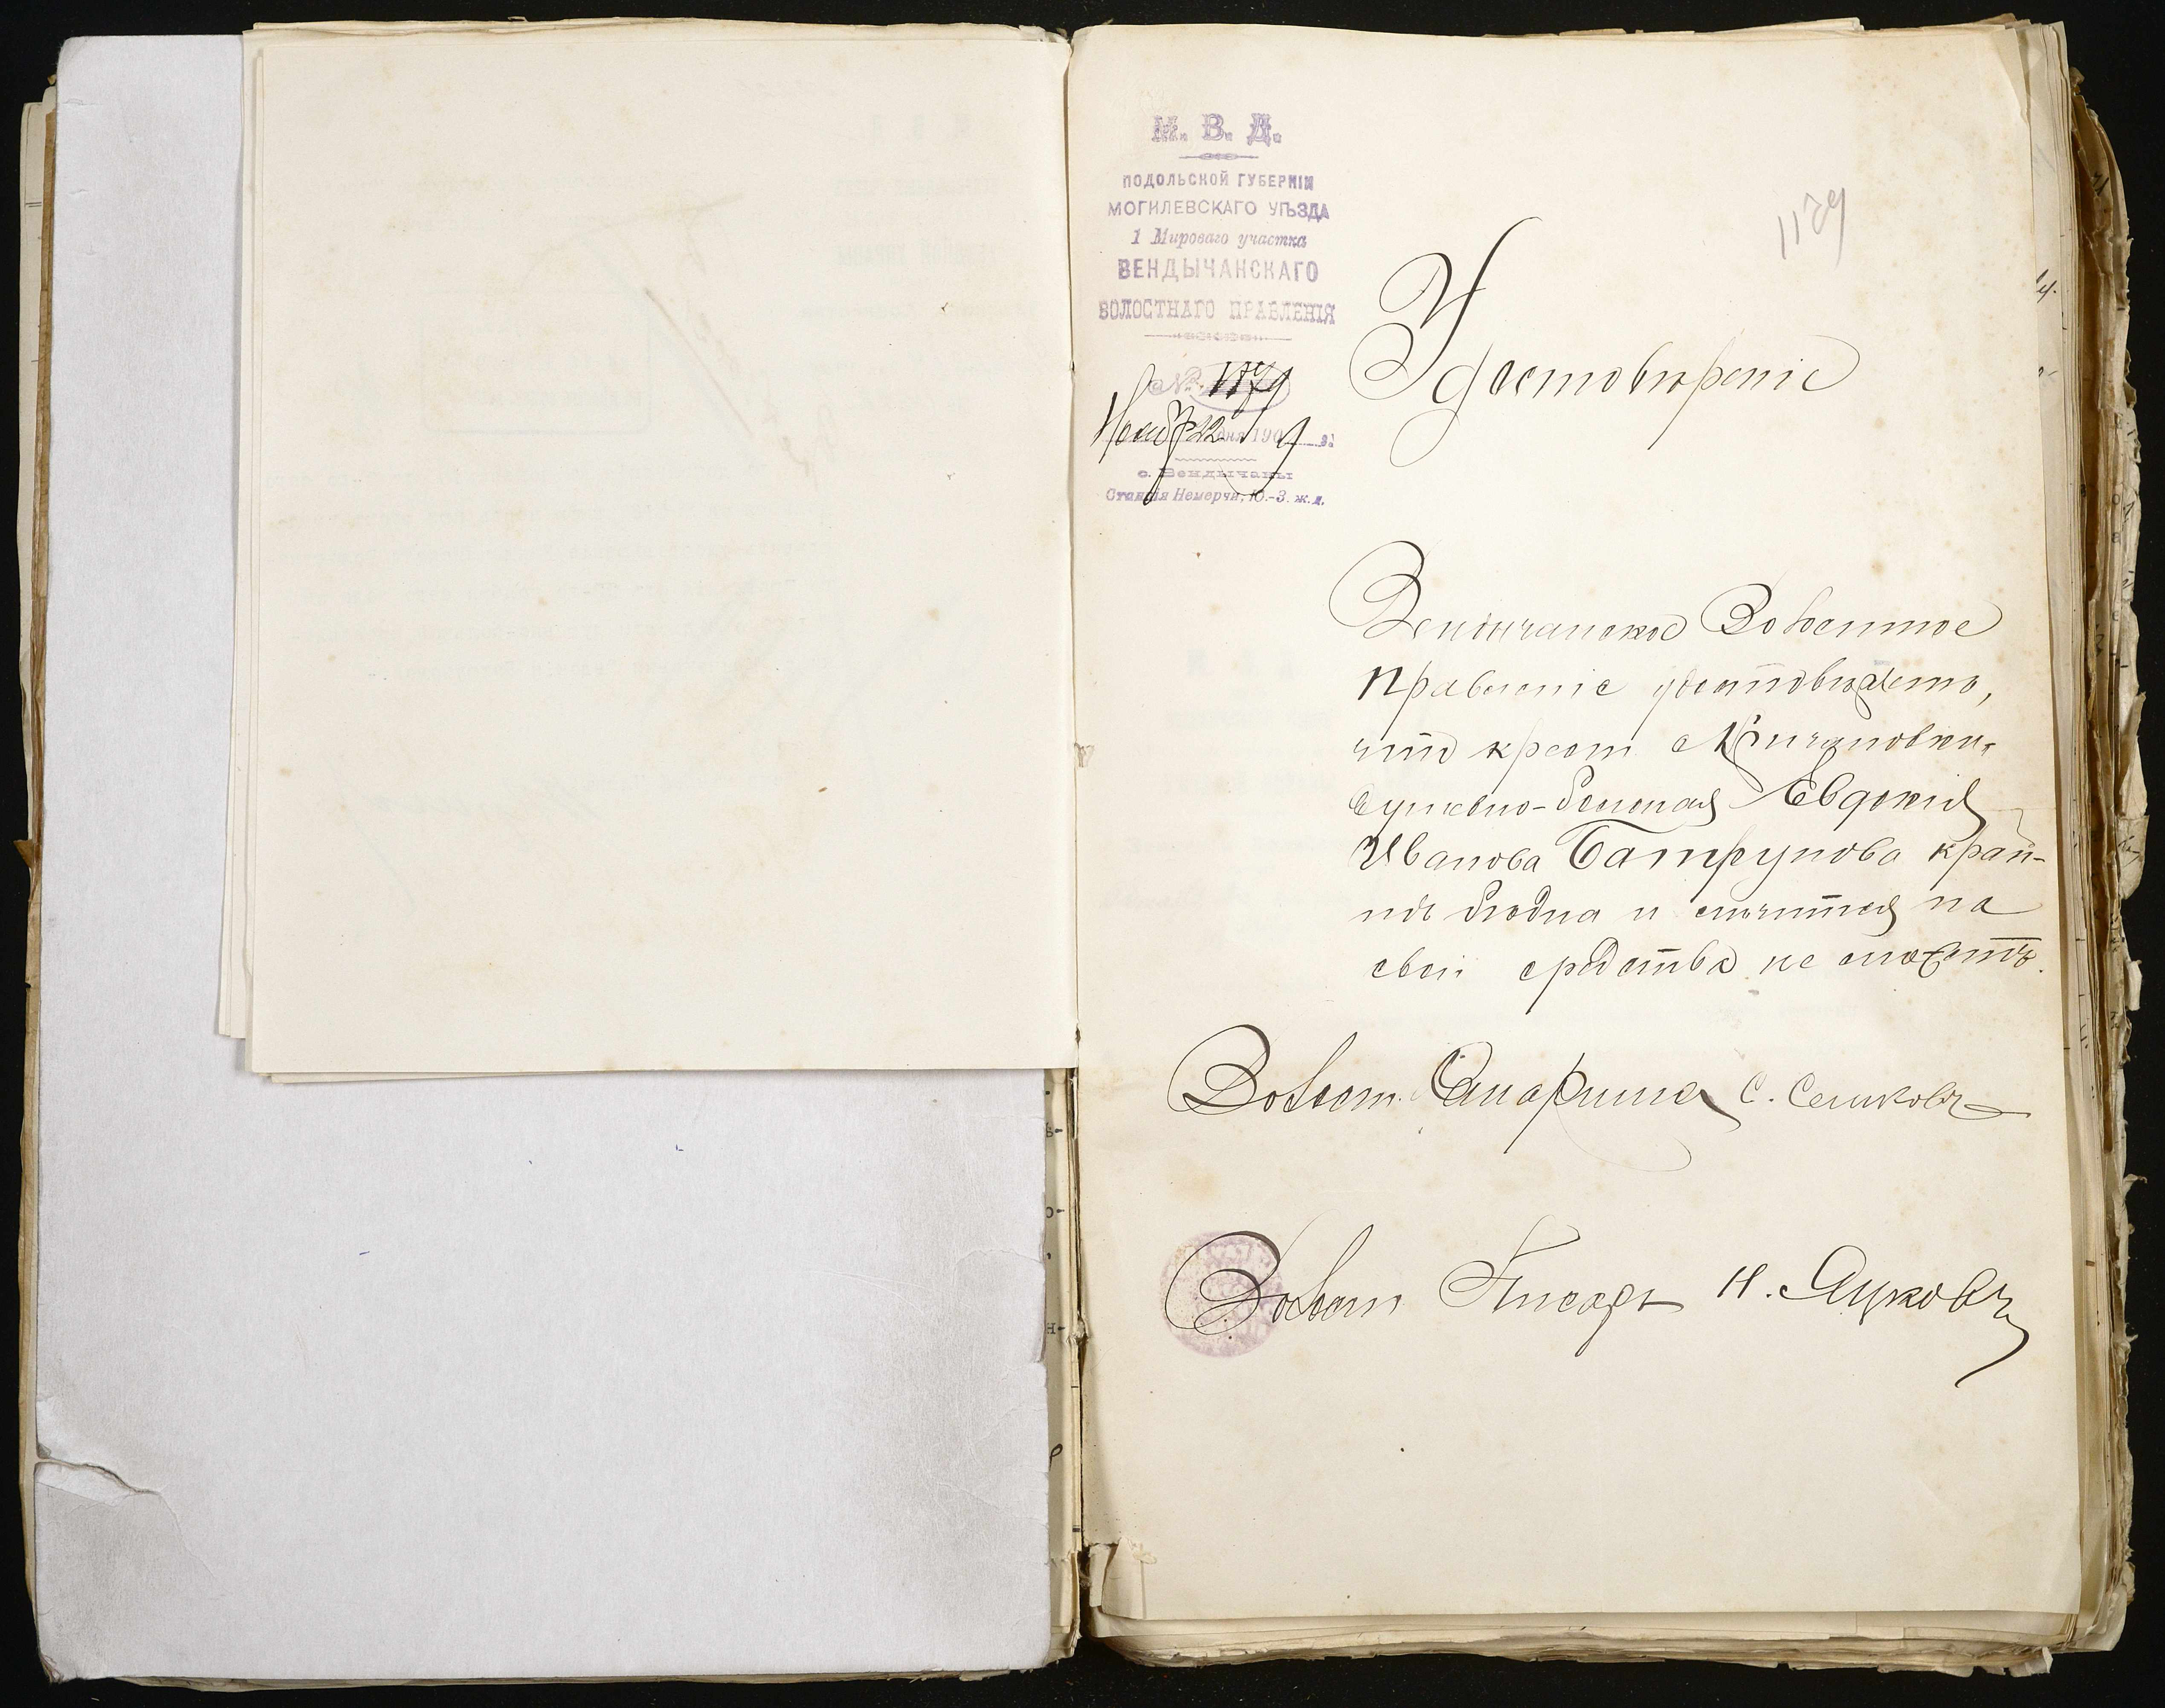 М. В. Д.
ПОДОЛЬСКОЙ ГУБЕРНІИ
МОГИЛЕВСКАГО УѢЗДА
1 Мироваго участка
ВЕНДЫЧАНСКАГО
ВОЛОСТНАГО ПРАВЛЕНІЯ
№ 1179
Нояб 22 дня 1909 г.
с. Вендычаны
Станція Немерчи, Ю.-З. ж. д.
1179
Удостовѣреніе
Вендичанское Волостное
Правленіе удостовѣряетъ,
что крест. с Кричановки,
душевно-больная Евдокия
Иванова Батрунова край-
нѣ бѣдна и лѣчится на
свои средства не можетъ.
Волост. Старшина С. Семковъ
Волост Писарь Н. Яцковъ